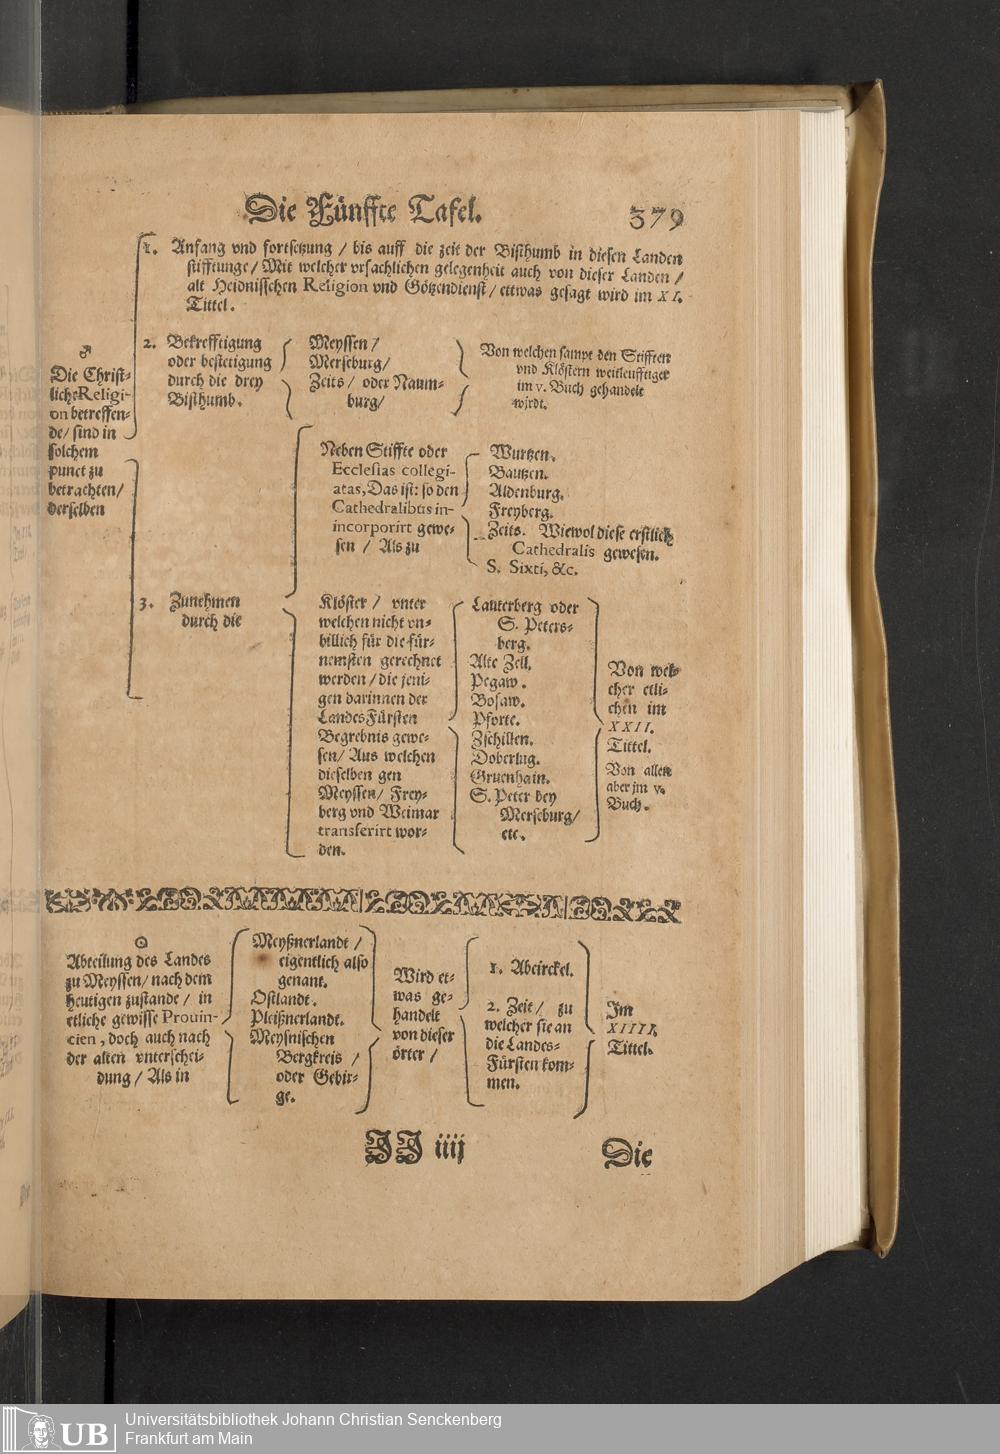 Die Fünffte Tafel.
379
1. Anfang vnd fortsetzung / bis auff die zeit der Bisthumb in diesen Landen
stifftunge / Mit welcher vrsachlichen gelegenheit auch von dieser Landen /
alt Heidnisschen Religion vnd Götzendienst / ettwas gesagt wird im XI.
Tittel.
♂
Die Christ-
liche Religi-
on betreffen-
de / sind in
solchem
punct zu
betrachten /
derselben
2. Bekrefftigung
oder bestetigung
durch die drey
Bisthumb.
Meyssen /
Merseburg /
Zeits / oder Naum-
burg /
Von welchen sampt den Stifften
vnd Klöstern weitleufftiger
im v. Buch gehandelt
wirdt.
3. Zunehmen
durch die
Neben Stiffte oder
Ecclesias collegi-
atas, Das ist: so den
Cathedralibus in-
incorporirt gewe-
sen / Als zu
Wurtzen.
Bautzen.
Aldenburg.
Freyberg.
Zeits. Wiewol diese erstlich
Cathedralis gewesen.
S. Sixti, &c.
Klöster / vnter
welchen nicht vn-
billich für die für-
nemsten gerechnet
werden / die jeni-
gen darinnen der
LandesFürsten
Begrebnis gewe-
sen / Aus welchen
dieselben gen
Meyssen / Frey-
berg vnd Weimar
transferirt wor-
den.
Lauterberg oder
S. Peters-
berg.
Alte Zell.
Pegaw.
Bosaw.
Pforte.
Zschillen.
Doberlug.
Gruenhain.
S. Peter bey
Merseburg /
etc.
Von wel-
cher etli-
chen im
XXII.
Tittel.
Von allen
aber jm v.
Buch.
☉
Abteilung des Landes
zu Meyssen / nach dem
heutigen zustande / in
etliche gewisse Prouin-
cien, doch auch nach
der alten vnterschei-
dung / Als in
Meyßnerlandt /
eigentlich also
genant.
Ostlandt.
Pleißnerlandt.
Meysnischen
Bergkreis /
oder Gebir-
ge.
Wird et-
was ge-
handelt
von dieser
örter /
1. Abcirckel.
2. Zeit / zu
welcher sie an
die Landes-
Fürsten kom-
men.
Im
XIIII.
Tittel.
JJ iiij
Die
UB
Universitätsbibliothek Johann Christian Senckenberg
Frankfurt am Main